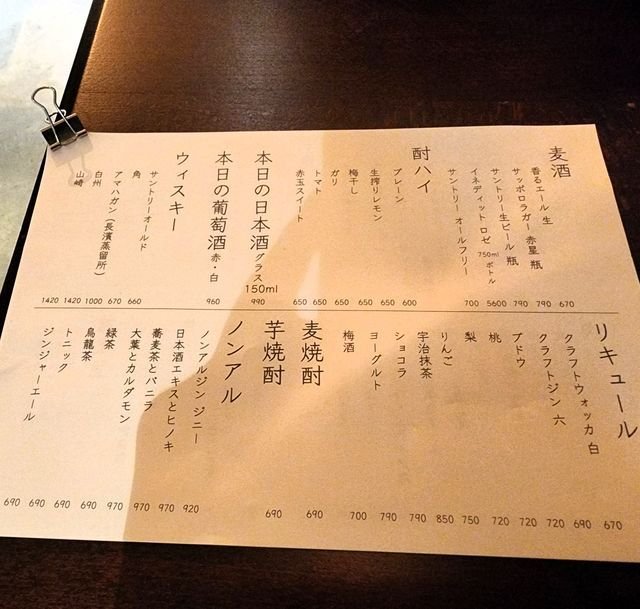 麦酒
香るエール 生 670
サッポロラガー 赤星 瓶 790
サントリー生ビール 瓶 790
イネディット ロゼ 750ml ボトル 5600
サントリー オールフリー 700
酎ハイ
プレーン 600
生搾りレモン 650
梅干し 650
ガリ 650
トマト 650
赤玉スイート 650
本日の日本酒 グラス 150ml 990
本日の葡萄酒 赤・白 960
ウィスキー
サントリーオールド 660
角 670
アマハガン(長濱蒸留所) 1000
白州 1420
山崎 1420
リキュール
クラフトウォッカ 白 670
クラフトジン 六 690
ブドウ 720
桃 720
梨 720
りんご 750
宇治抹茶 850
ショコラ 790
ヨーグルト 790
梅酒 700
麦焼酎 690
芋焼酎 690
ノンアル
ノンアルジン ジニー 920
日本酒エキスとヒノキ 970
蕎麦茶とバニラ 970
大葉とカルダモン 970
緑茶 690
烏龍茶 690
トニック 690
ジンジャーエール 690